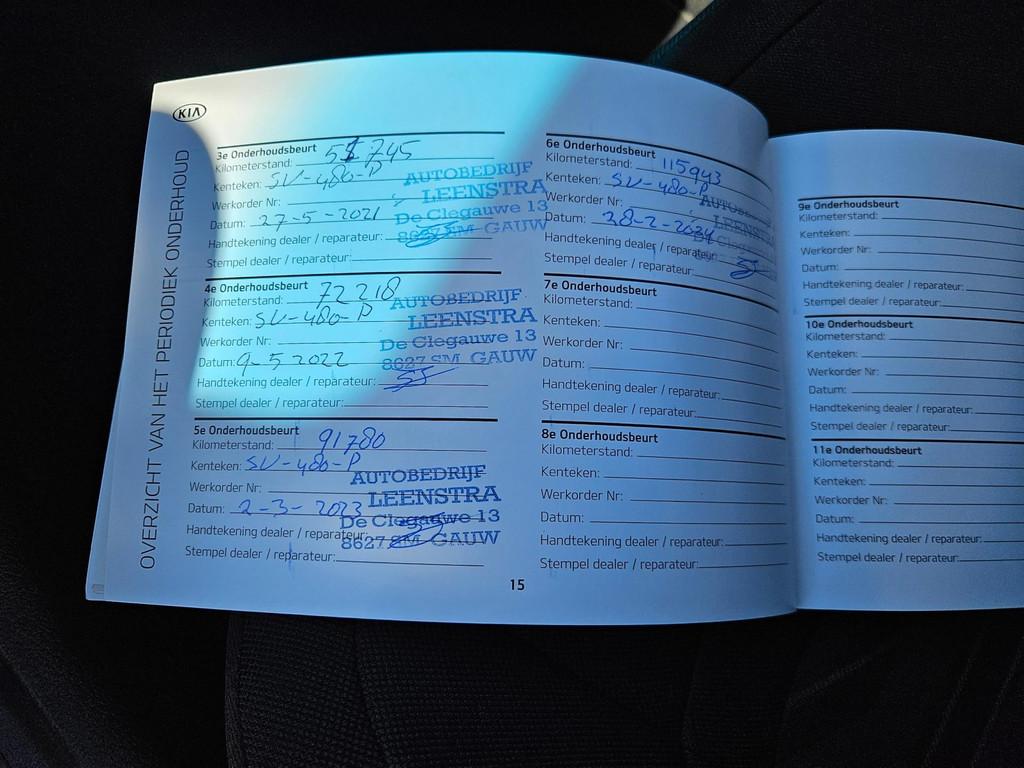 KIA
OVERZICHT VAN HET PERIODIEK ONDERHOUD
3e Onderhoudsbeurt
Kilometerstand: 51745
Kenteken: SV-480-P
Werkorder Nr:
Datum: 27-5-2021
Handtekening dealer / reparateur:
Stempel dealer / reparateur:
AUTOBEDRIJF
LEENSTRA
De Clegauwe 13
8627 SM GAUW
4e Onderhoudsbeurt
Kilometerstand: 72218
Kenteken: SV-480-P
Werkorder Nr:
Datum: 9-5-2022
Handtekening dealer / reparateur:
Stempel dealer / reparateur:
AUTOBEDRIJF
LEENSTRA
De Clegauwe 13
8627 SM GAUW
5e Onderhoudsbeurt
Kilometerstand: 91780
Kenteken: SV-480-P
Werkorder Nr:
Datum: 2-3-2023
Handtekening dealer / reparateur:
Stempel dealer / reparateur:
AUTOBEDRIJF
LEENSTRA
De Clegauwe 13
8627 SM GAUW
15
6e Onderhoudsbeurt
Kilometerstand: 115943
Kenteken: SV-480-P
Werkorder Nr:
Datum: 28-2-2024
Handtekening dealer / reparateur:
Stempel dealer / reparateur:
7e Onderhoudsbeurt
Kilometerstand:
Kenteken:
Werkorder Nr:
Datum:
Handtekening dealer / reparateur:
Stempel dealer / reparateur:
8e Onderhoudsbeurt
Kilometerstand:
Kenteken:
Werkorder Nr:
Datum:
Handtekening dealer / reparateur:
Stempel dealer / reparateur:
9e Onderhoudsbeurt
Kilometerstand:
Kenteken:
Werkorder Nr:
Datum:
Handtekening dealer / reparateur:
Stempel dealer / reparateur:
10e Onderhoudsbeurt
Kilometerstand:
Kenteken:
Werkorder Nr:
Datum:
Handtekening dealer / reparateur:
Stempel dealer / reparateur:
11e Onderhoudsbeurt
Kilometerstand:
Kenteken:
Werkorder Nr:
Datum:
Handtekening dealer / reparateur:
Stempel dealer / reparateur: